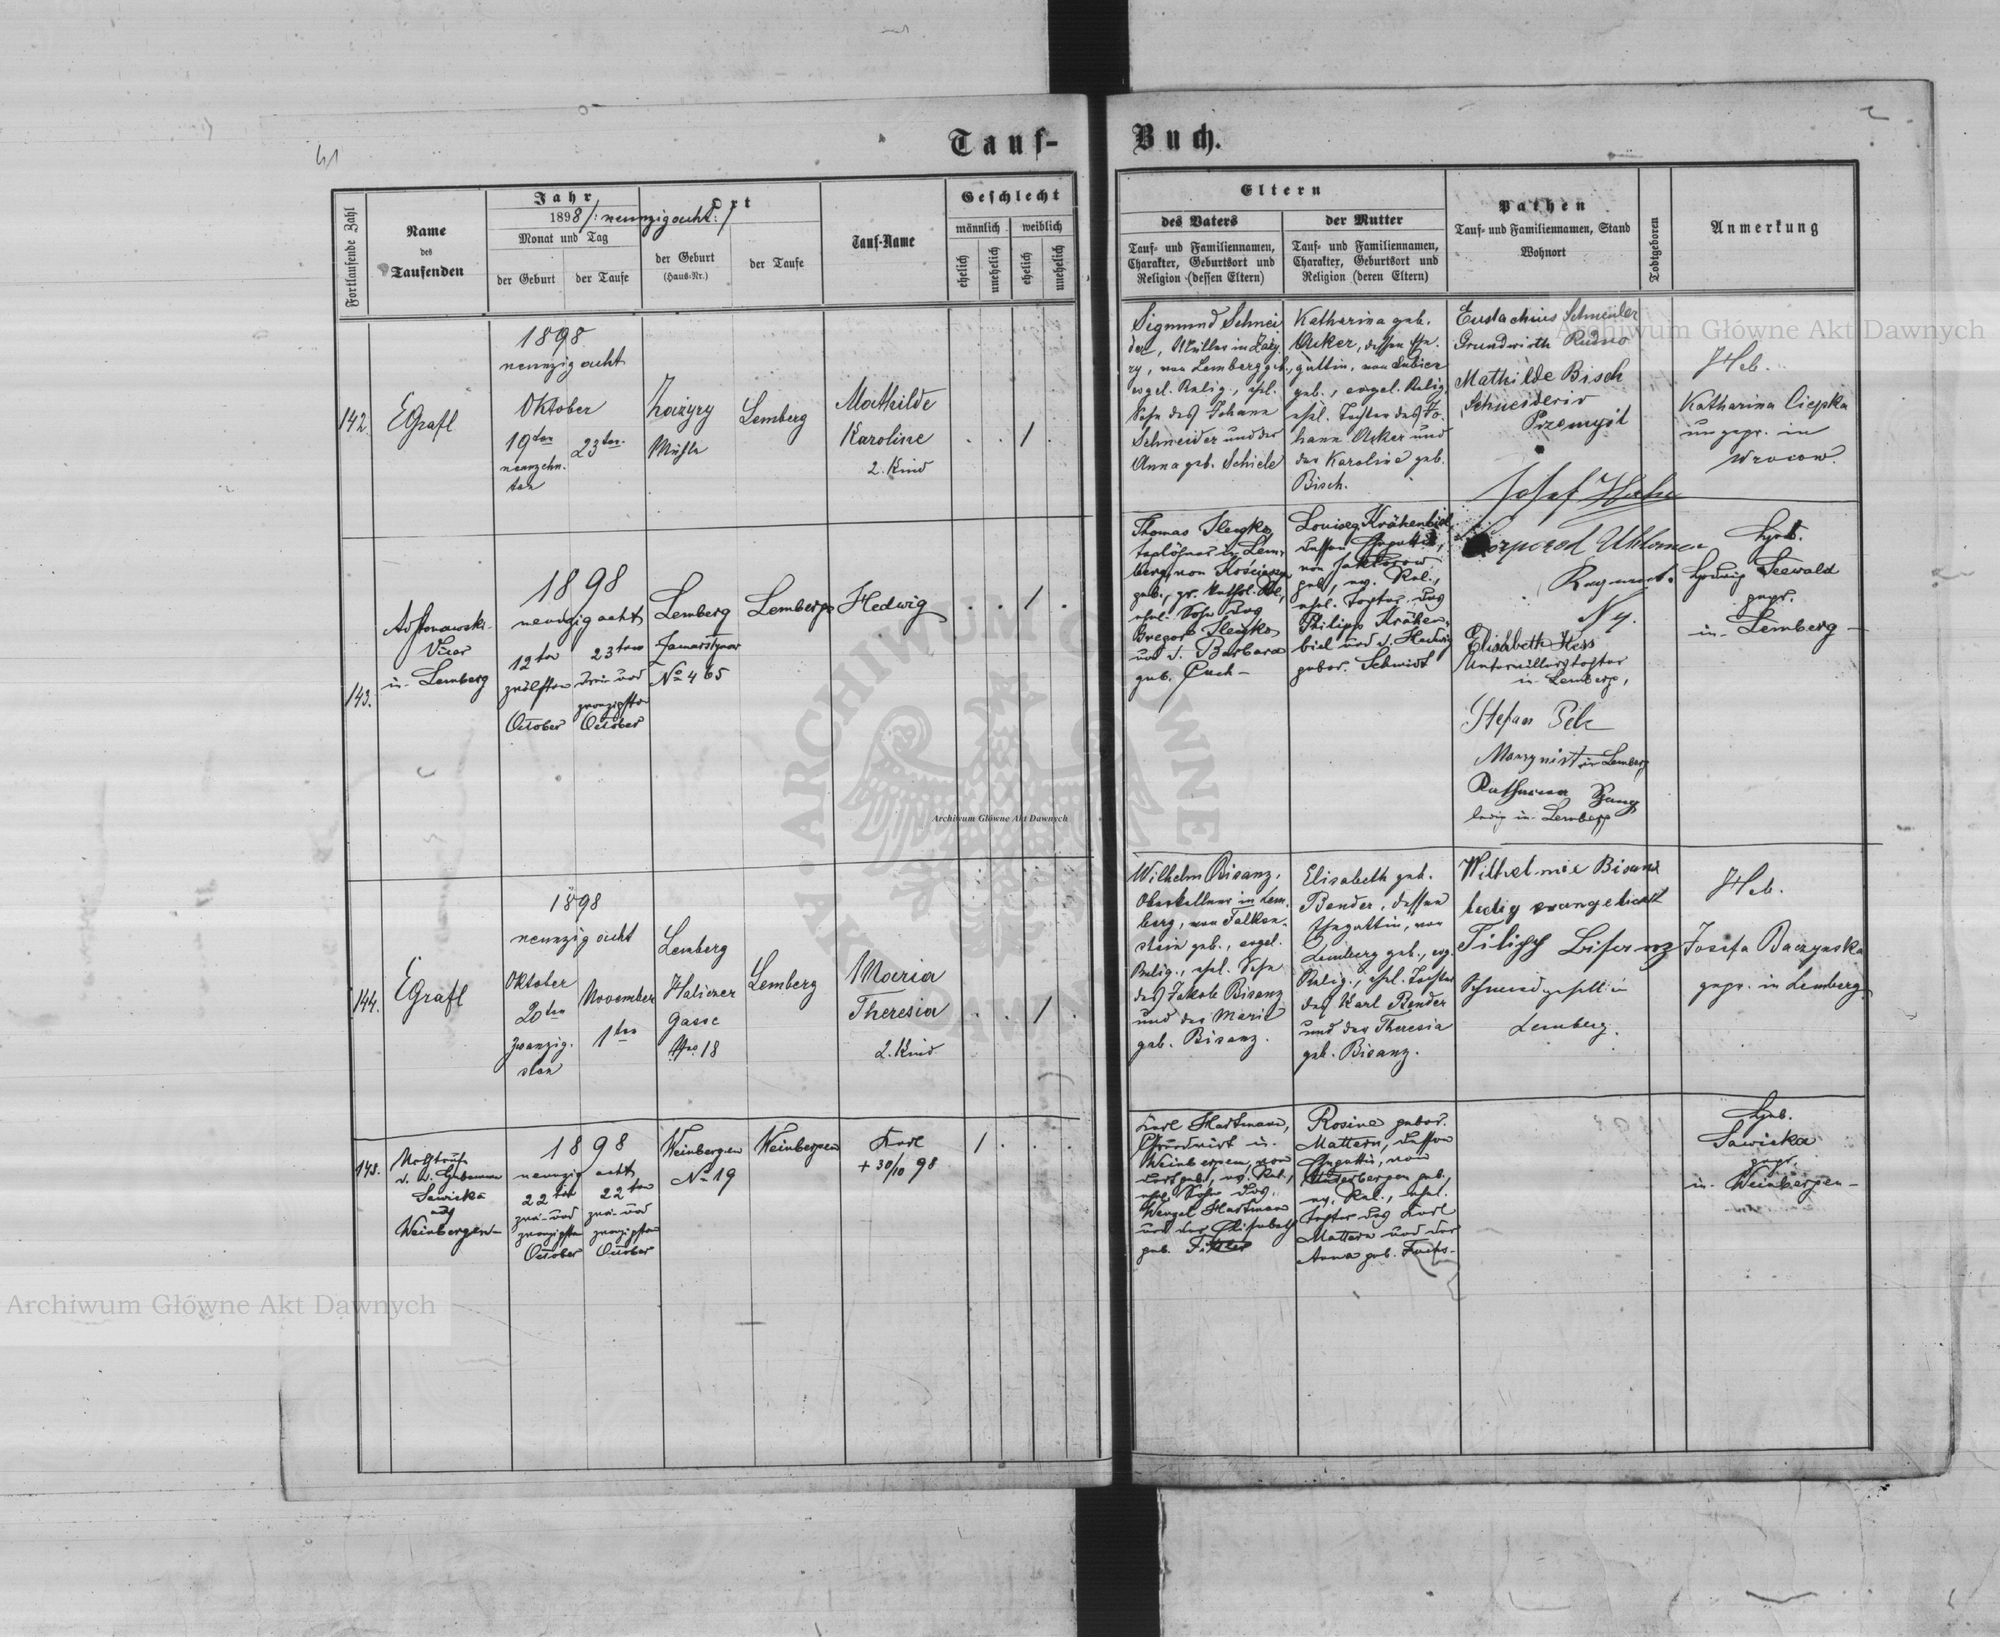 41
Tauf-
Buch.
Fortlaufende Zahl
Name
des
Taufenden
Jahr
1898 /: neunzigacht :/
Monat und Tag
der Geburt
der Taufe
Ort
der Geburt
(Haus-Nr.)
der Taufe
Tauf-Name
Geschlecht
männlich
weiblich
ehelich
unehelich
ehelich
unehelich
Eltern
des Vaters
Tauf- und Familiennamen,
Charakter, Geburtsort und
Religion (dessen Eltern)
der Mutter
Tauf- und Familiennamen,
Charakter, Geburtsort und
Religion (deren Eltern)
Pathen
Tauf- und Familiennamen, Stand
Wohnort
Todtgeboren
Anmerkung
142.
EGrafl
1898
neunzig acht
Oktober
19ten
neunzehn-
ten
23ten
Zażyry
Mühle
Lemberg
Mathilde
Karoline
2. Kind
1
Sigmund Schnei
der, Müller in Zaży
ry, von Lemberg geb.,
evgel. Relig., ehel.
Sohn des Johann
Schneider und der
Anna geb. Schiele
Katharina geb.
Acker, dessen Ehe-
gattin, von
geb., evgel. Relig.
ehel. Tochter des Jo-
hann Acker und
der Karoline geb.
Bisch.
Eustachius Schneider
Grundwirth Rudno
Mathilde Bisch
Schneiderin
Przemyśl
Heb.
Katharina Ciepka
ungepr. in
Wrocow.
143.
Vicar
in Lemberg
1898
neunzig acht
12ten
zwölften
October
23ten
drei und
zwanzigsten
October
Lemberg
Zamarstynow
No 465
Lemberg
Hedwig
1
Thomas
taglöhner in Lem-
berg, von
geb., gr. kathol. Rel.,
ehel. Sohn des
Gregor
und d. Barbara
geb.
Louise Krähenbiel,
dessen Ehegattin,
von
geb., ev. Rel.,
ehel. Tochter des
Philipp Krähen-
biel und d. Hedwig
gebor. Schmidt
Josef Hahn
Korporal Uhlanen
Regiment
Elisabeth Hess
in Lemberg,
Stefan
in Lemberg
Katharina
ledig in Lemberg
Heb.
Hedwig Seewald
gepr.
in Lemberg
144.
EGrafl
1898
neunzig acht
Oktober
20ten
zwanzig-
sten
November
1ten
Lemberg
Haliczer
Gasse
Nro 18
Lemberg
Maria
Theresia
2. Kind
1
Wilhelm Bisanz,
Oberkellner in Lem-
berg, von Falken-
stein geb., evgel.
Relig., ehel. Sohn
des Jakob Bisanz
und der Marie
geb. Bisanz.
Elisabeth geb.
Bender, dessen
Ehegattin, von
Lemberg geb., evg.
Relig., ehel. Tochter
des Karl Bender
und der Theresia
geb. Bisanz.
Wilhelmine Bisanz
ledig evangelisch
Filipp Bisanz
Schmiedgeselle in
Lemberg.
Heb.
Josefa Baczynska
gepr. in Lemberg
145.
Nothtaufe
v. d. Hebamme
Sawicka
auf
Weinbergen
1898
neunzig acht
22ten
zwei und
zwanzigsten
October
22ten
zwei und
zwanzigsten
October
Weinbergen
No 19
Weinbergen
Karl
+ 30/10 98
1
Karl Hartmann,
Grundwirt in
Weinbergen, von
dort geb., ev. Rel.,
ehel. Sohn des
Wenzel Hartmann
und der Elisabeth
geb.
Rosina gebor.
Mattern, dessen
Ehegattin, von
Unterbergen geb.,
ev. Rel., ehel.
Tochter des Karl
Mattern und der
Anna geb. Fuchs
Heb.
Sawicka
gepr.
in Weinbergen
Archiwum Główne Akt Dawnych
Archiwum Główne Akt Dawnych
Archiwum Główne Akt Dawnych